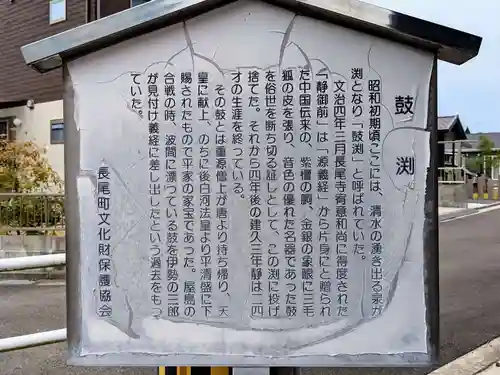 鼓渕
昭和初期頃ここには、清水の湧き出る泉が
渕となり「鼓渕」と呼ばれていた。
文治四年三月長尾寺宥意和尚に得度された
「静御前」は「源義経」から片身にと贈られ
た中国伝来の、紫檀の胴、金銀の象眼に三毛
狐の皮を張り、音色の優れた名器であった鼓
を俗世を断ち切る証しとして、この渕に投げ
捨てた。それから四年後の建久三年静は二四
才の生涯を終っている。
その鼓とは重源僧上が唐より持ち帰り、天
皇に献上、のちに後白河法皇より平清盛に下
賜されたもので平家の家宝であった。屋島の
合戦の時、波間に漂っている鼓を伊勢の三郎
が見付け義経に差し出したという過去をもっ
ていた。
長尾町文化財保護協会